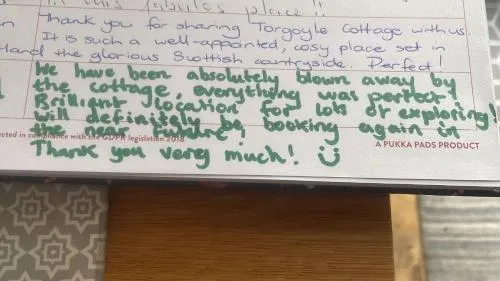 in this fabulous place !!
Thank you for sharing Torgoyle Cottage with us.
It is such a well-appointed, cosy place set in
the glorious Scottish countryside. Perfect!
We have been absolutely blown away by
the cottage, everything was perfect!
Brilliant location for lots of exploring!
will definitely be booking again in
ected in compliance with the GDPR legislation 2018
Thank you very much!
A PUKKA PADS PRODUCT